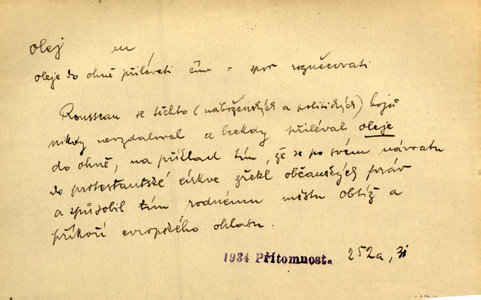 olej m
oleje do ohně přilévati čím = spor rozněcovati
Rousseau se těchto (náboženských a politických) bojů
nikdy nevzdaloval a leckdy přiléval oleje
do ohně, na příklad tím, že se po svém návratu
do protestantské církve zřekl občanských práv
a způsobil tím rodnému městu obtíž a
příkoří evropského ohlasu.
1934 Přítomnost. 252a,